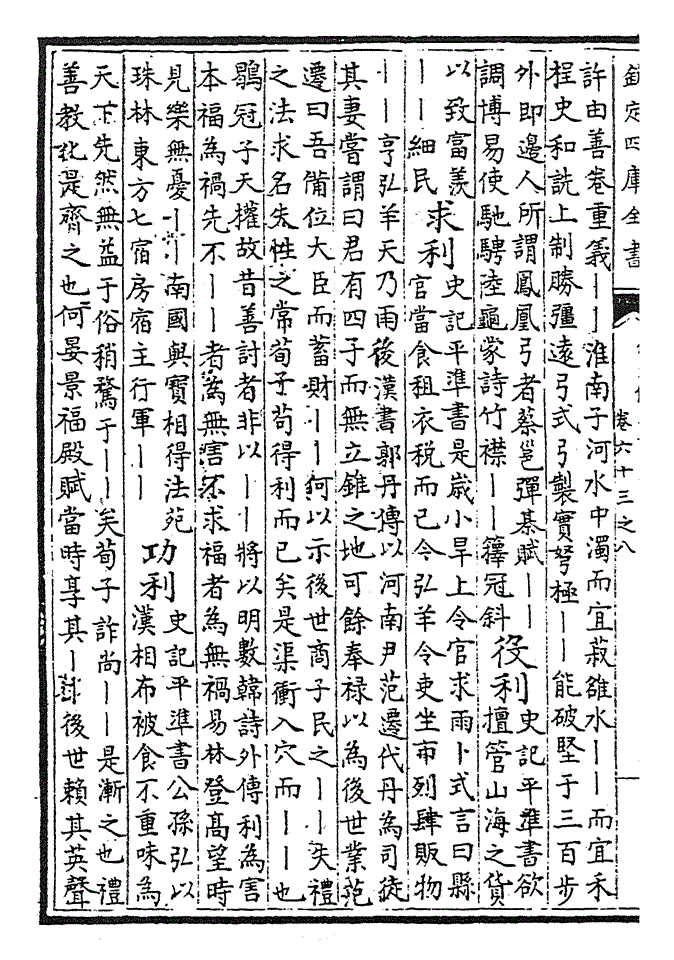 欽定四庫全書
卷六十三之八
許由善卷重義丨丨淮南子河水中濁而宜菽雒水丨丨而宜禾
桯史和詵上制勝彊遠弓式弓製實弩極丨丨能破堅于三百步
外即邊人所謂鳳凰弓者蔡邕彈棊賦丨丨
調博易使馳騁陸龜蒙詩竹襟丨丨籜冠斜
役利
史記平準書欲
擅管山海之貨
以致富羨
丨丨細民
求利
史記平準書是歲小旱上令官求雨卜式言曰縣
官當食租衣稅而已今弘羊令吏坐市列肆販物
丨丨亨弘羊天乃雨後漢書郭丹傳以河南尹范遷代丹為司徒
其妻嘗謂曰君有四子而無立錐之地可餘奉禄以為後世業范
遷曰吾備位大臣而蓄財丨丨何以示後世商子民之丨丨失禮
之法求名失性之常荀子苟得利而已矣是渠衝入穴而丨丨也
鶡冠子天權故昔善討者非以丨丨將以明數韓詩外傳利為害
本福為禍先不丨丨者為無害不求福者為無禍易林登髙望時
見樂無憂丨丨南國與寶相得法苑
珠林東方七宿房宿主行軍丨丨
功利
史記平準書公孫弘以
漢相布被食不重味為
天下先然無益于俗稍騖于丨丨矣荀子詐尚丨丨是漸之也禮
善教化是齊之也何晏景福殿賦當時享其丨丨後世賴其英聲